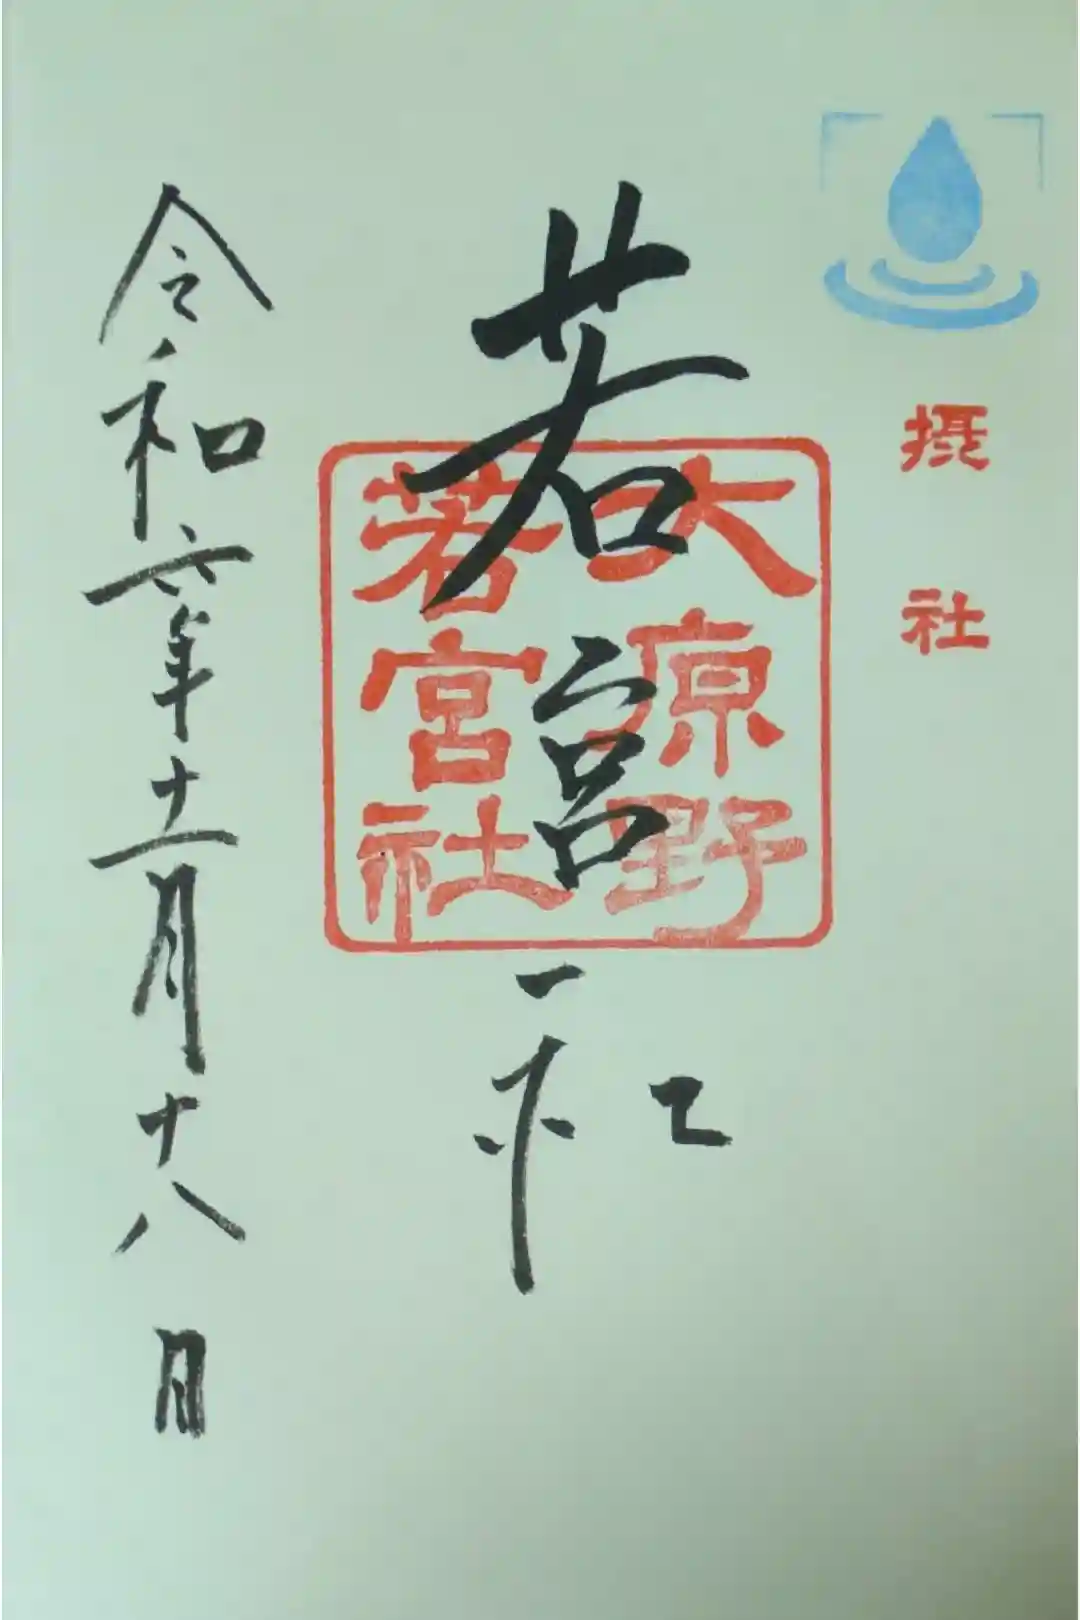 摂社
大原野
若宮社
若宮社
令和六年十一月十八日